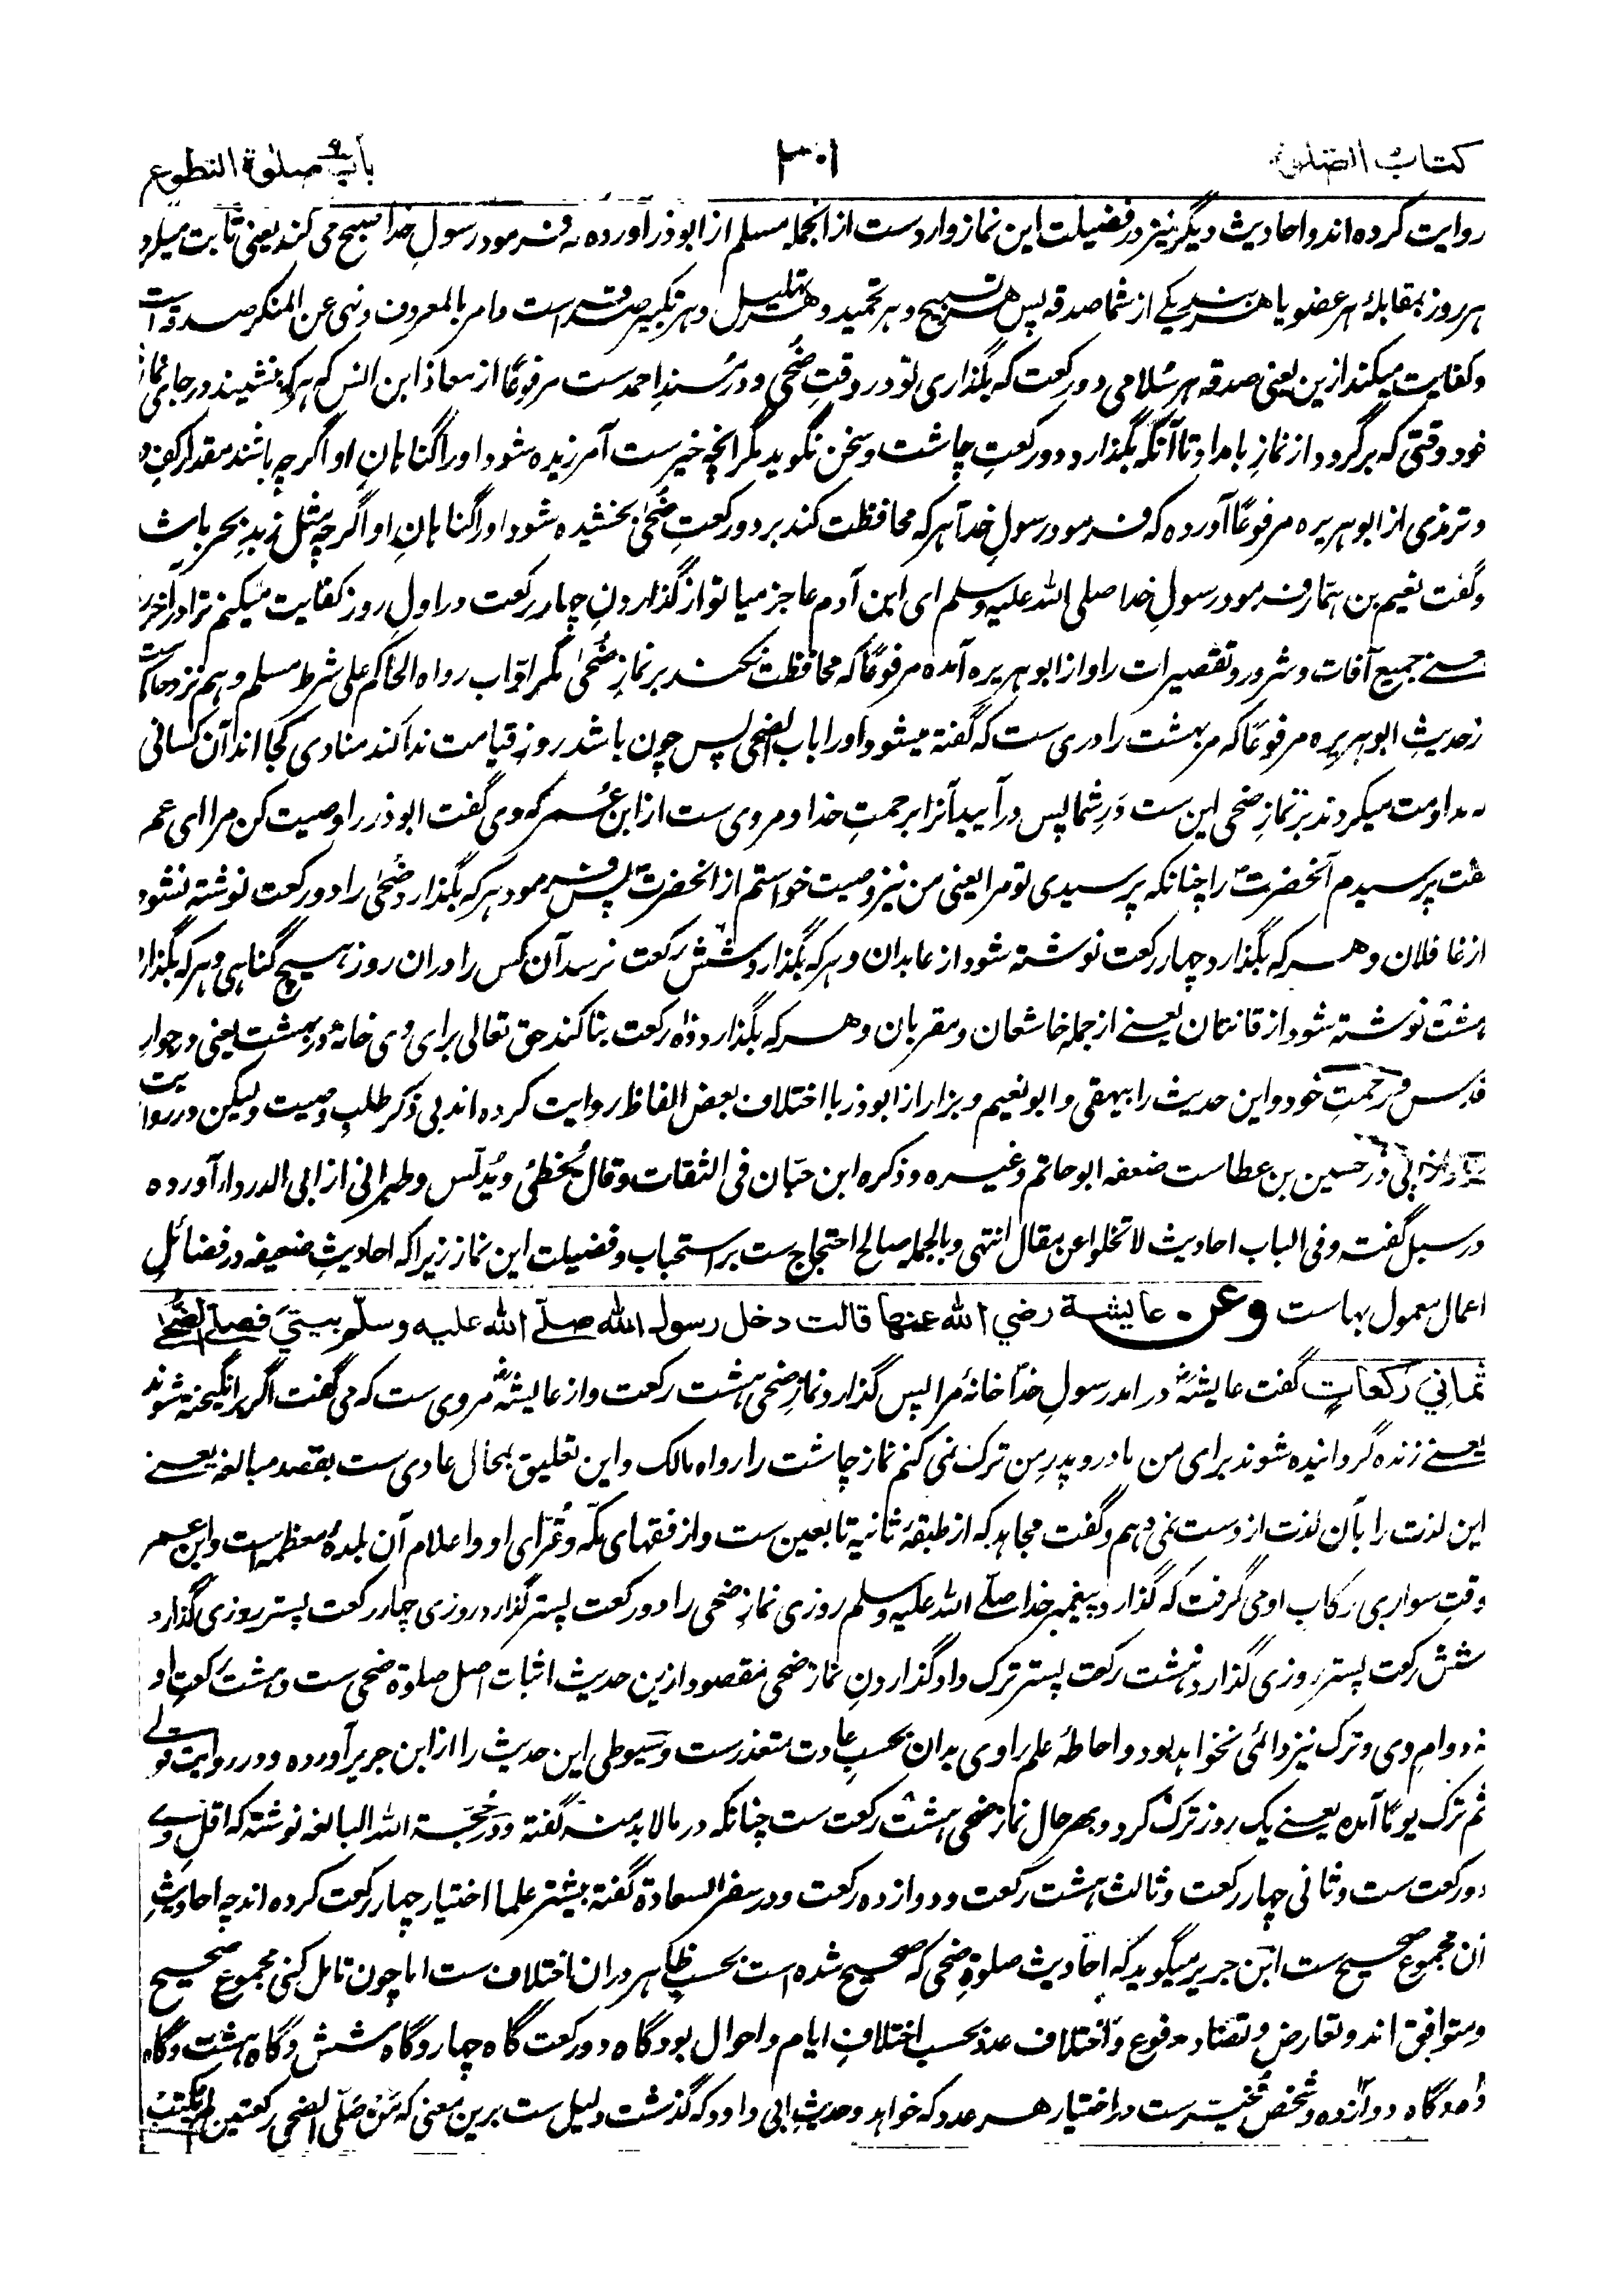 کتاب الصلوة ۳۰۱ باب صلوة التطوع
روایت کرده اند و احادیث دیگر نیز در فضیلت این نماز وارد ست از انجمله مسلم از ابوذر آورده که فرمود رسولِ خدا صبح می کند یعنی ثابت میگردد
هر روز بمقابلهٔ هر عضو یا هر بند یکے از شما صدقه پس هر تسبیح و هر تحمید و هر تهلیل و هر تکبیر صدقه است و امر بالمعروف و نهی عن المنکر صدقه است
و کفایت میکند ازین یعنی صدقه هر سُلامی دو رکعت که بگذاری تو در وقتِ ضُحی و در مُسندِ احمد ست مرفوعًا از معاذ ابن انس که هر که بنشیند در جای نماز
خود وقتی که برگردد از نمازِ بامداد تا آنکه بگذارد دو رکعتِ چاشت و سخن نگوید مگر انچه خیر ست آمرزیده شود او را گناهانِ او اگر چه باشند مقدار کفِ د
و ترمذی از ابو هریره مرفوعًا آورده که فرمود رسولِ خدا هر که محافظت کند بر دو رکعتِ ضُحیٰ بخشیده شود او را گناهانِ او اگر چه مثل زبدِ بحر باشد
و گفت نعیم بن همّار فرمود رسولِ خدا صلی الله علیه وسلم ای ابن آدم عاجز میا تو از گذاردنِ چهار رکعت در اولِ روز کفایت میکنم ترا در آخر
یعنے جمیع آفات و شرور و تقصیرات را و از ابو هریره آمده مرفوعًا که محافظت نکند بر نمازِ ضُحیٰ مگر اوّاب رواه الحاکم علی شرط مسلم و هم نزد حاکم ست
زحدیثِ ابو هریره مرفوعًا که مر بهشت را دری ست که گفته میشود او را باب الضحی پس چون باشد روزِ قیامت ندا کند منادی کجا اند آن کسانی
که مداومت میکردند بر نمازِ ضحی این ست دَرِ شما پس در آیید آنرا برحمتِ خدا و مروی ست از ابن عُمر که وی گفت ابوذر را وصیت کن مرا ای عم
گفت پرسیدم آنحضرت را چنانکه پرسیدی تو مرا یعنی من نیز وصیت خواستم از انحضرت پس فرمود هر که بگذارد ضُحیٰ را دو رکعت نوشته نشود
از غافلان و هر که بگذارد چهار رکعت نوشته شود از عابدان و هر که بگذارد شش رکعت نرسد آن کس را دران روز هیچ گناهی و هر که بگذارد
هشت نوشته شود از قانتان یعنے از جمله خاشعان و مقربان و هر که بگذارد دَه رکعت بنا کند حق تعالی برای وی خانهٔ در بهشت یعنی در جوارِ
قدس و رحمتِ خود و این حدیث را بیهقی و ابو نعیم و بزار از ابوذر با اختلاف بعض الفاظ روایت کرده اند بی ذکر طلبِ وصیت ولیکن در روایت
ابی ذر حسین بن عطاست ضعفه ابو حاتم و غیره و ذکره ابن حبّان فی الثقات و قال یُخطئ ویُدلّس و طبرانی از ابی الدرداء آورده
در سبل گفته و فی الباب احادیث لا تخلوا عن مقال انتهی و بالجمله صالح احتجاج ست بر استحباب و فضیلت این نماز زیرا که احادیثِ ضعیفه در فضائلِ
اعمال معمول بهاست وعن عایشة رضي الله عنها قالت دخل رسول الله صلّى الله عليه وسلّم بيتيَ فصلّى الضُّحى
ثماني رَكعاتٍ گفت عایشه در امد رسولِ خدا خانهٔ مرا پس گذارد نمازِ ضحی هشت رکعت و از عایشه مروی ست که می گفت اگر برانگیخته شوند
یعنے زنده گردانیده شوند برای من مادر و پدرِ من ترک نمی کنم نماز چاشت را رواه مالک و این تعلیق بمحال عادی ست بقصد مبالغه یعنے
این لذت را بآن لذت از دست نمی دهم و گفت مجاهد که از طبقهٔ ثانیهٔ تابعین ست و از فقهای مکّه و قُرّای او و اعلامِ آن بلدهٔ معظمه است و ابن عمر
وقتِ سواری رکاب او می گرفت که گذارد پیغمبرِ خدا صلّے الله علیه وسلم روزی نمازِ ضحی را دو رکعت پستر گذارد روزی چهار رکعت پستر روزی گذارد
شش رکعت پستر روزی گذارد هشت رکعت پستر ترک داد گذاردنِ نماز ضحی مقصود ازین حدیث اثبات اصل صلوة ضحی ست و هشت رکعتِ او
نه دوامِ وی و ترک نیز دائمی نخواهد بود و احاطهٔ علم راوی بدان بحسبِ عادت متعذر ست و سیوطی این حدیث را از ابن جریر آورده و در روایتِ
ثم ترک یومًا آمده یعنے یک روز ترک کرد و بهر حال نماز ضحی هشت رکعت ست چنانکه در مالابدمنه گفته و در حُجّة الله البالغه نوشته که اقلِ وے
دو رکعت ست و ثانی چهار رکعت و ثالث هشت رکعت و دوازده رکعت و در سفر السعادة گفته بیشتر علما اختیار چهار رکعت کرده اند چه احادیثِ
آن مجموع صحیح ست ابن جریر میگوید که احادیث صلوةِ ضحی که صحیح شده است بحسبِ ظاهر دران اختلاف ست اما چون تامل کنی مجموع صحیح
و متوافق اند و تعارض و تضاد مدفوع و اختلاف عدد بحسب اختلافِ ایام و احوال بود گاه دو رکعت گاه چهار و گاه شش و گاه هشت و گاه
ده و گاه دوازده و شخص مخیّر ست در اختیار هر عدد که خواهد و حدیثِ ابی داود که گذشت دلیل ست برین معنی که مَنْ صَلّی الضحی رکعتین لم یکتب